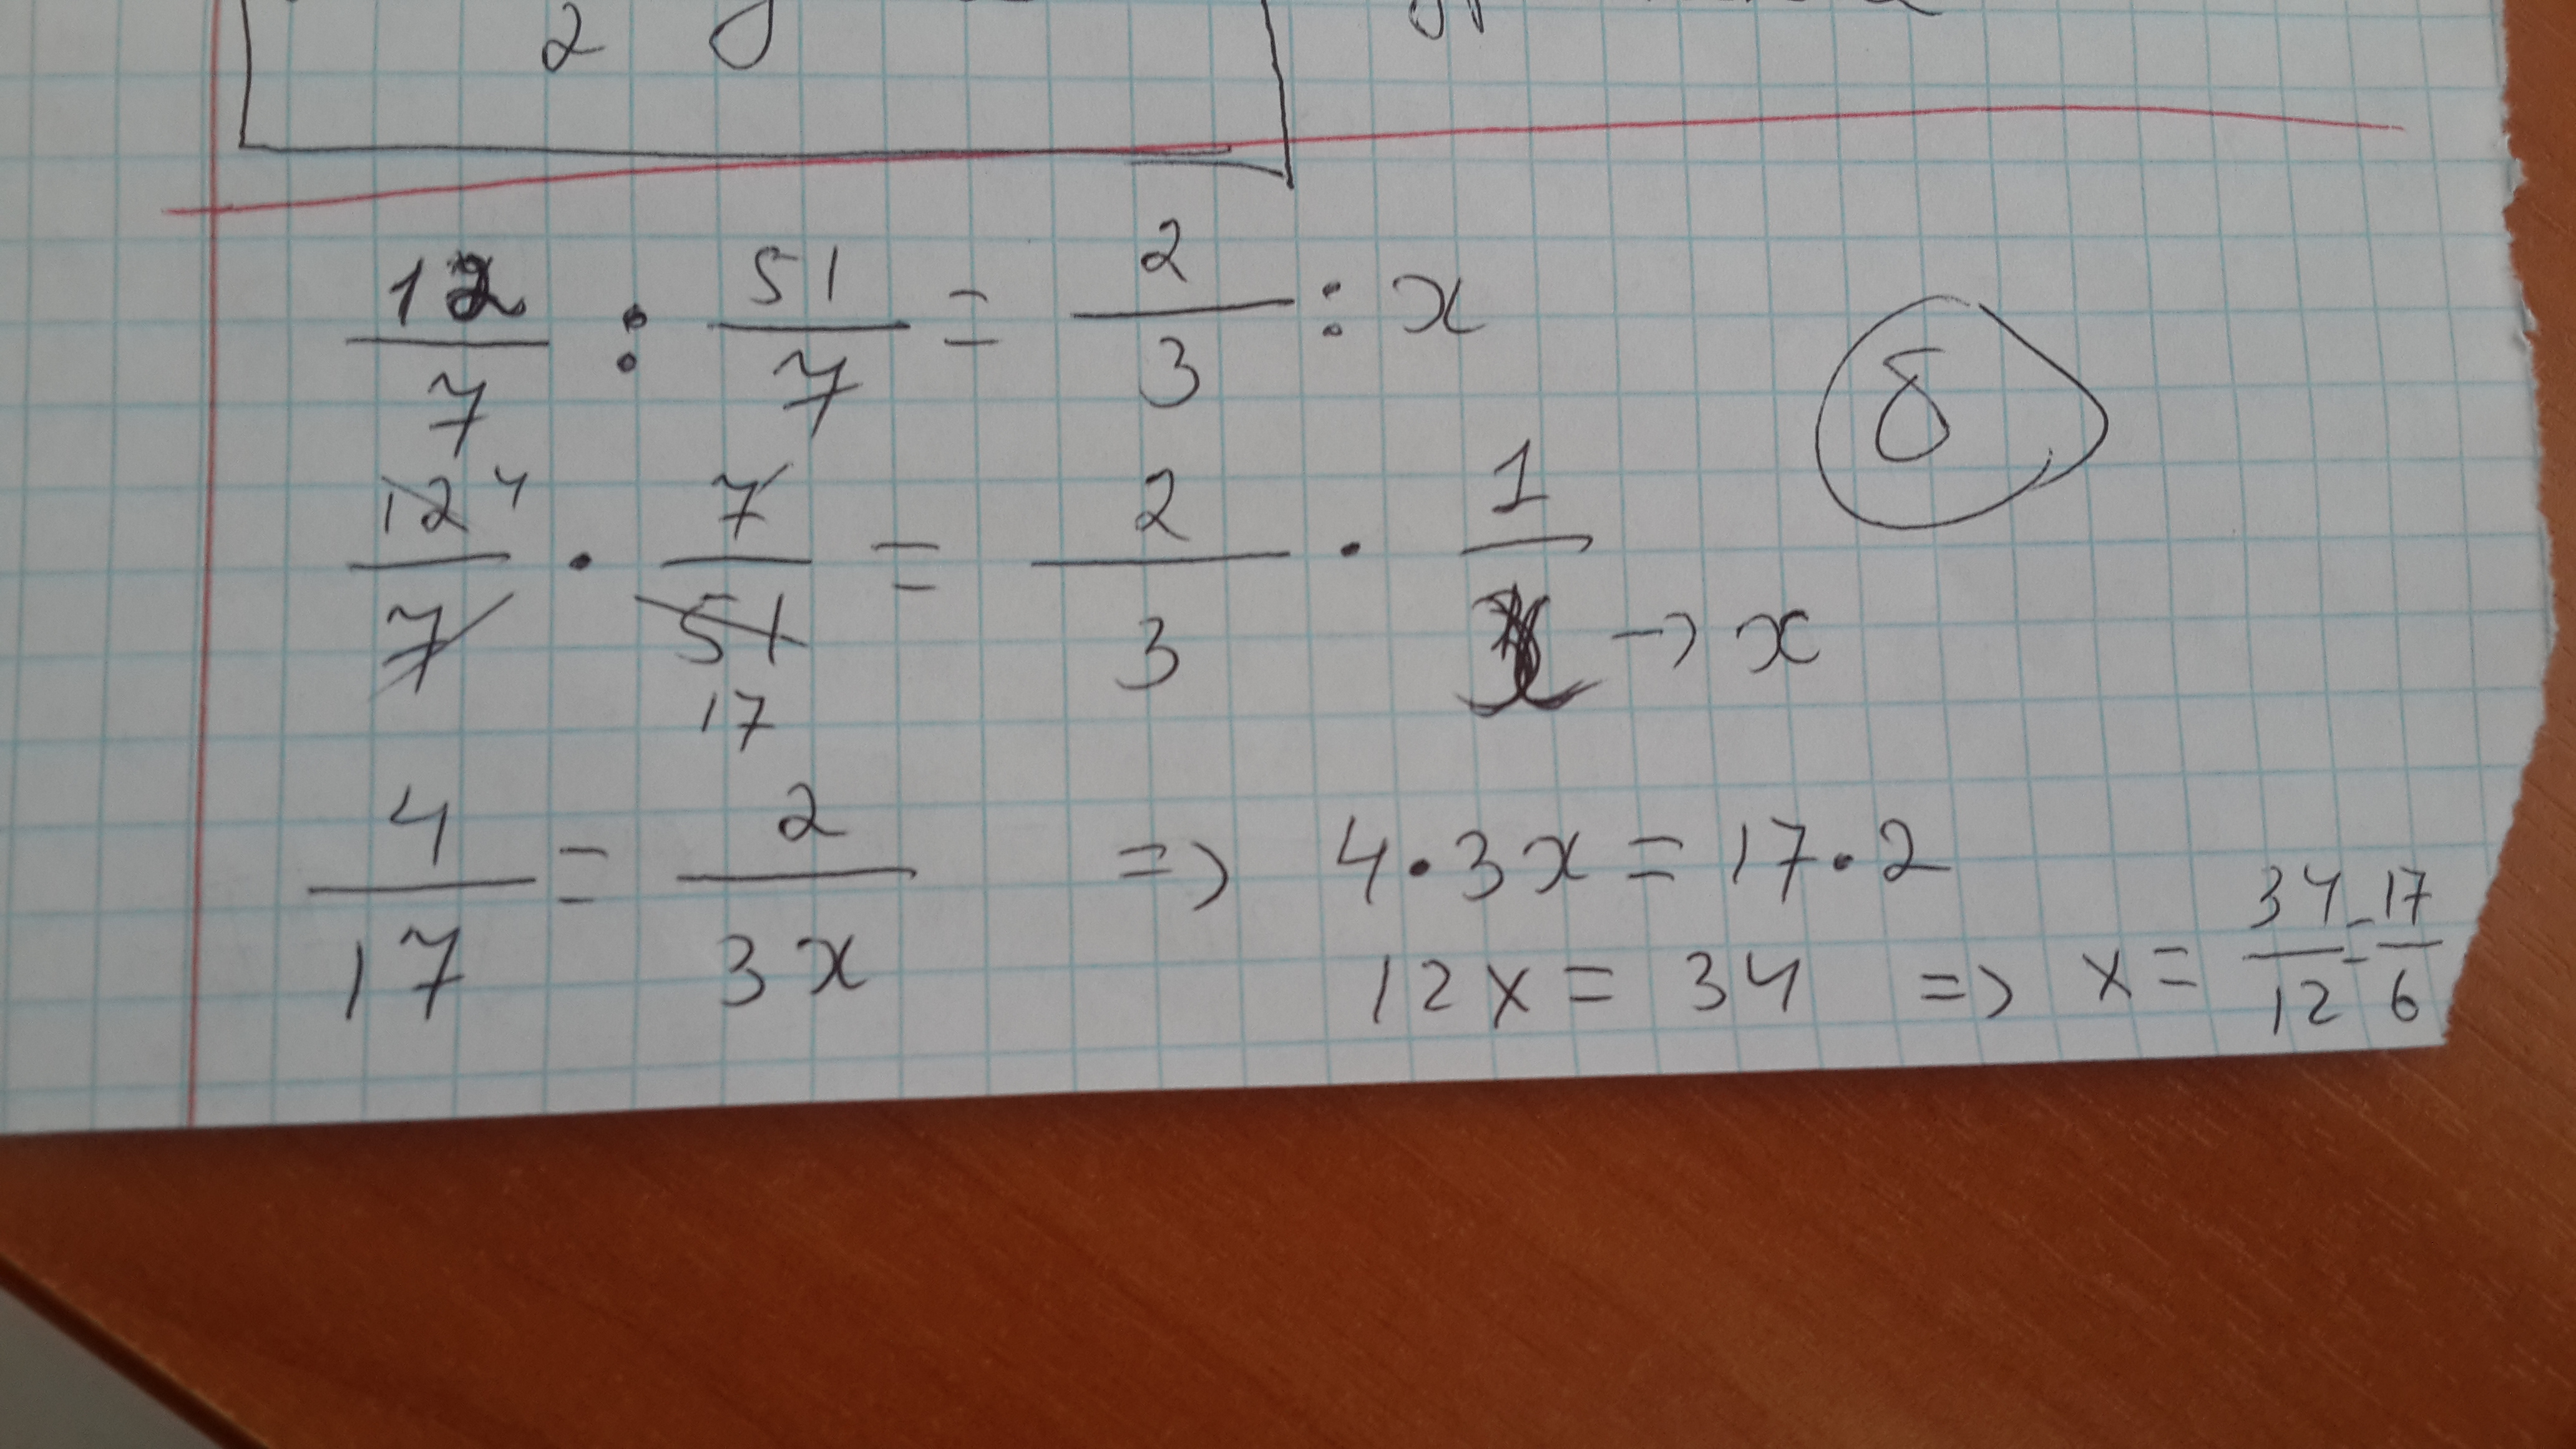 2
12/7 : 51/7 = 2/3 : x
8
12 4/7 · 7/51 17 = 2/3 · 1/x → x
4/17 = 2/3x => 4·3x = 17·2
12x = 34 => x = 34/12 = 17/6